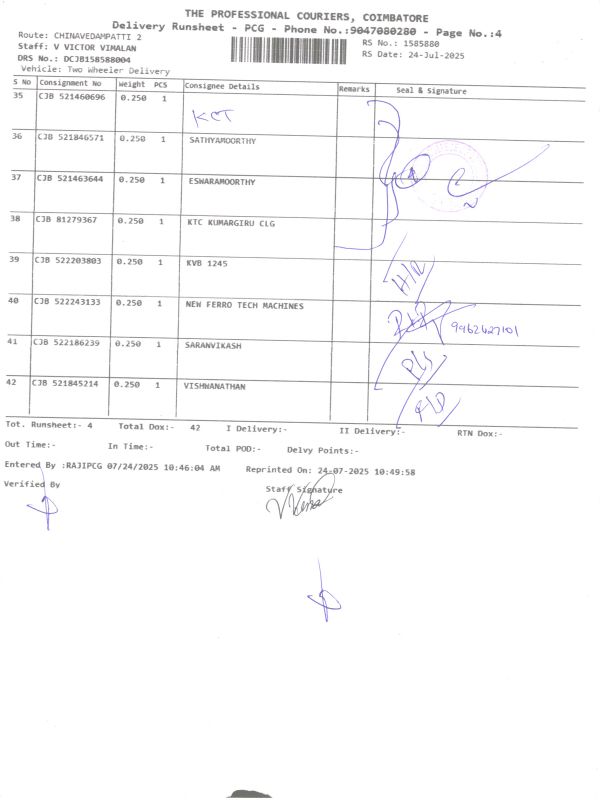 THE PROFESSIONAL COURIERS, COIMBATORE
Delivery Runsheet - PCG - Phone No.:9047080280 - Page No.:4
Route: CHINAVEDAMPATTI 2
Staff: V VICTOR VIMALAN
DRS No.: DCJB158588004
Vehicle: Two Wheeler Delivery
RS No.: 1585880
RS Date: 24-Jul-2025
S No Consignment No Weight PCS Consignee Details Remarks Seal & Signature
35 CJB 521460696 0.250 1 KCT
36 CJB 521846571 0.250 1 SATHYAMOORTHY
37 CJB 521463644 0.250 1 ESWARAMOORTHY
38 CJB 81279367 0.250 1 KTC KUMARGIRU CLG
39 CJB 522203803 0.250 1 KVB 1245
40 CJB 522243133 0.250 1 NEW FERRO TECH MACHINES 9962427101
41 CJB 522186239 0.250 1 SARANVIKASH
42 CJB 521845214 0.250 1 VISHWANATHAN
Tot. Runsheet:- 4 Total Dox:- 42 I Delivery:- II Delivery:- RTN Dox:-
Out Time:- In Time:- Total POD:- Delvy Points:-
Entered By :RAJIPCG 07/24/2025 10:46:04 AM Reprinted On: 24-07-2025 10:49:58
Verified By Staff Signature